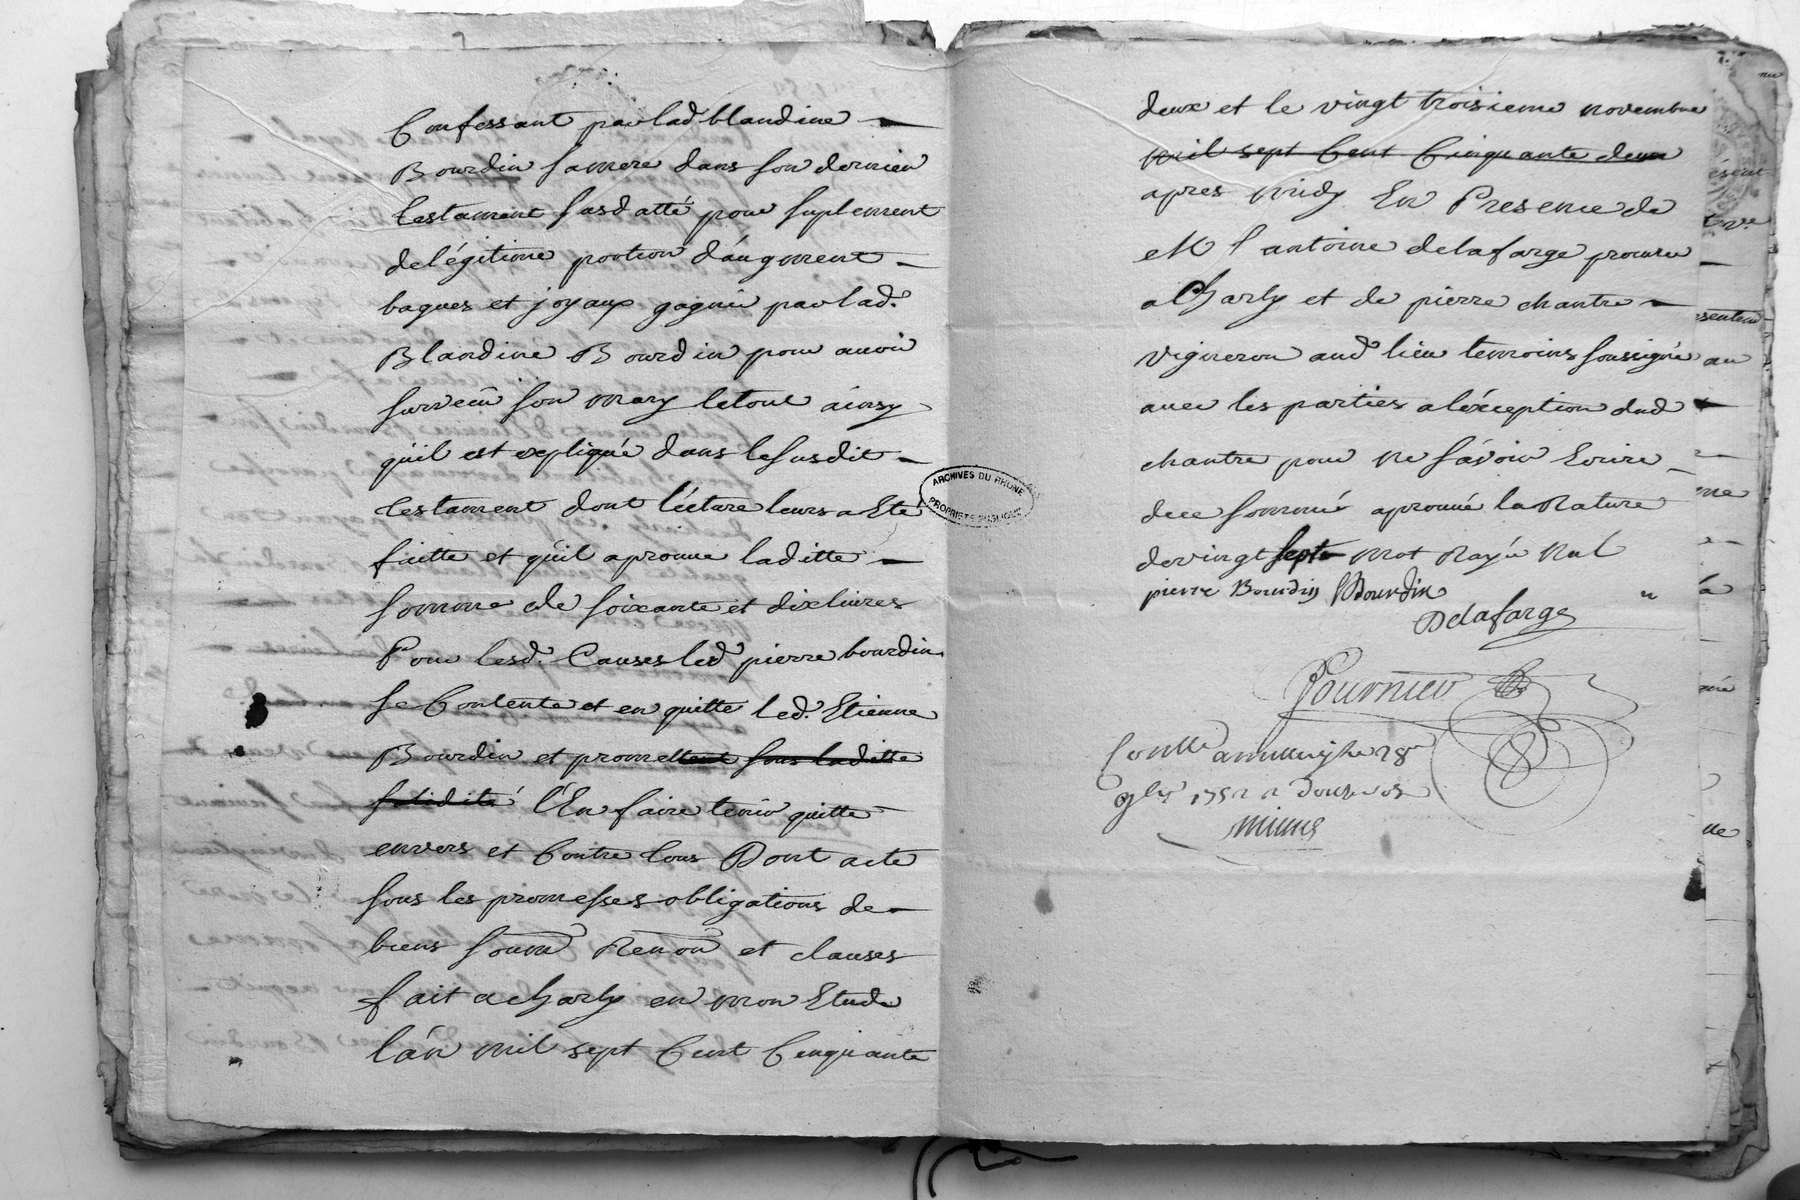 Confessant par lad blandine
Bourdin sa mere dans son dernier
testament susdatté pour suplement
de légitime portion d'augment
bagues et joyaux gagnés par lad.
Blandine Bourdin pour avoir
survecû son mary le tout ainsy
qu'il est expliqué dans le susdit
testament dont lécture leurs a Eté
faitte et qu'il aprouve laditte
somme de soixante et dix livres
Pour lesd. Causes led pierre bourdin
se Contente et en quitte led. Etienne
Bourdin et promettent sous laditte
solidité l'En faire tenir quitte
envers et Contre tous Dont acte
sous les promesses obligations de
biens soum Renon et clauses
fait a charly en mon Etude
l'án mil sept Cent Cinquante
ARCHIVES DU RHONE
PROPRIÉTÉ PUBLIQUE
deux et le vingt troisieme novembre
mil sept Cent Cinquante deux
apres midy En Presence de
antoine delafarge
a Charly et de pierre chantre
vigneron aud lieu temoins soussignés
avec les parties a léxception dud
chantre pour ne sávoir Ecrire
de ce sommé aprouvé la Rature
de vingt sept mot Rayé Nul
pierre Bourdin Bourdin
Delafarge
Fournier
Conllé a millery le 28
9bre 1752 a douze sols